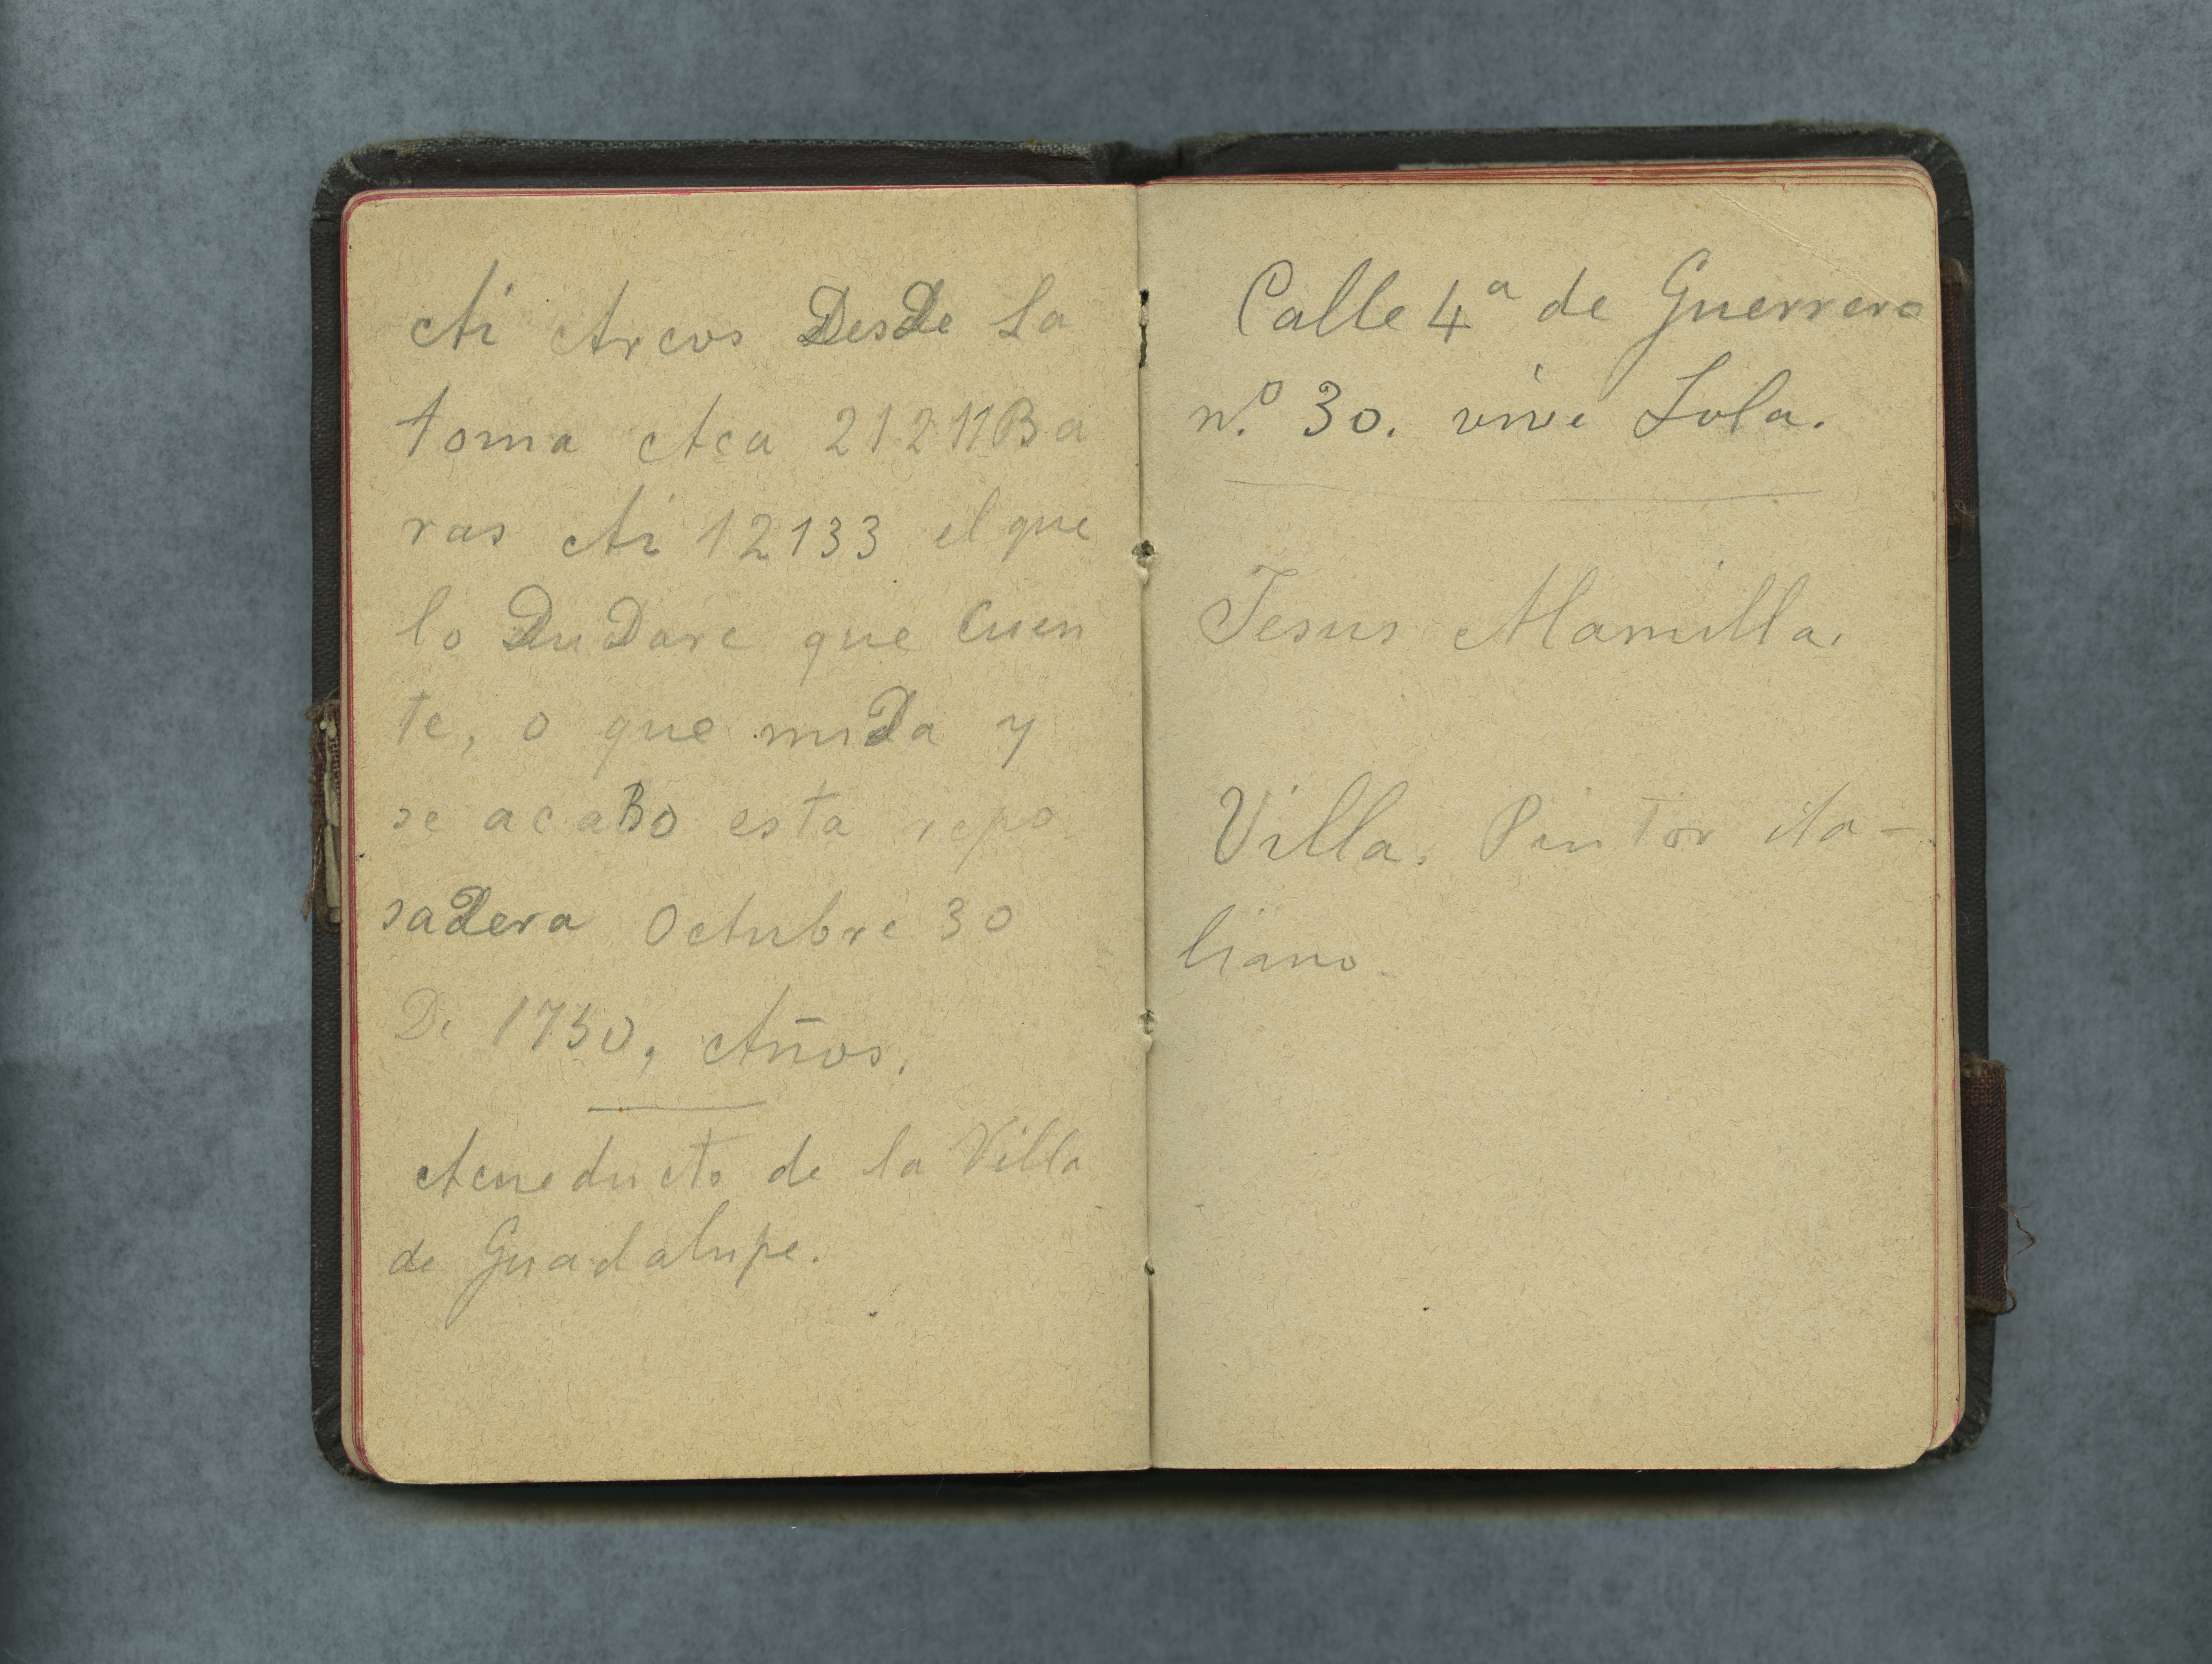 Ai Arcos DesDe La
toma Aca 21211Ba
ras Ai 12133 el que
lo DuDare que Cuen
te, o que miDa y
se acaBo esta repo
saDera Octubre 30
De 1750, Años.
Acueducto de la Villa
de Guadalupe.
Calle 4ª de Guerrero
n.º 30. vive Lola.
Jesus Mamilla.
Villa. Pintor ita-
liano.